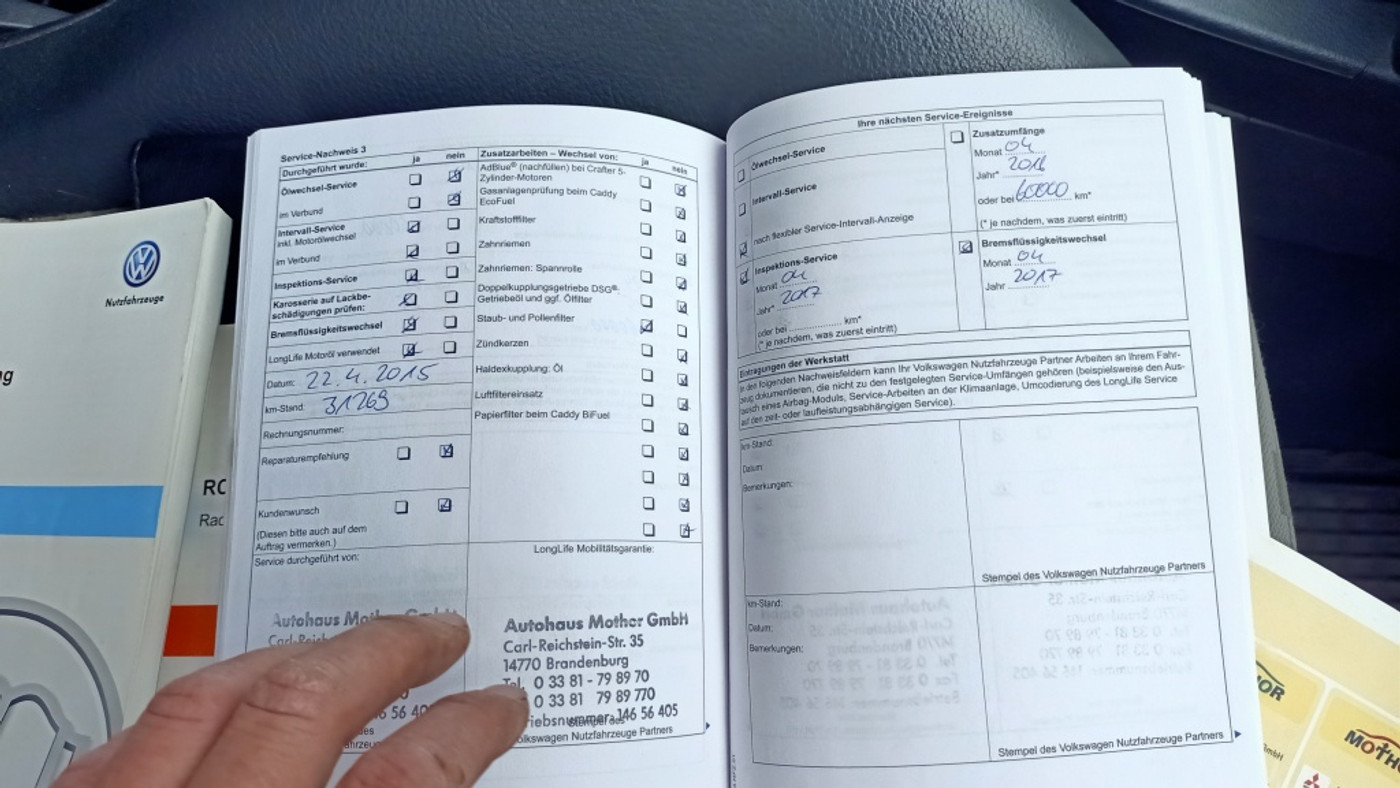 Nutzfahrzeuge
Service-Nachweis 3
Durchgeführt wurde: ja nein
Ölwechsel-Service
im Verbund
Intervall-Service
inkl. Motorölwechsel
im Verbund
Inspektions-Service
Karosserie auf Lackbe-
schädigungen prüfen:
Bremsflüssigkeitswechsel
LongLife Motoröl verwendet
Datum: 22.4.2015
km-Stand: 31269
Rechnungsnummer:
Reparaturempfehlung
Kundenwunsch
(Diesen bitte auch auf dem
Auftrag vermerken.)
Service durchgeführt von:
Autohaus Mothor GmbH
Carl-Reichs
Zusatzarbeiten – Wechsel von: ja nein
AdBlue® (nachfüllen) bei Crafter 5-
Zylinder-Motoren
Gasanlagenprüfung beim Caddy
EcoFuel
Kraftstofffilter
Zahnriemen
Zahnriemen: Spannrolle
Doppelkupplungsgetriebe DSG®:
Getriebeöl und ggf. Ölfilter
Staub- und Pollenfilter
Zündkerzen
Haldexkupplung: Öl
Luftfiltereinsatz
Papierfilter beim Caddy BiFuel
LongLife Mobilitätsgarantie:
Autohaus Mothor GmbH
Carl-Reichstein-Str. 35
14770 Brandenburg
Tel. 0 33 81 - 79 89 70
0 33 81 79 89 770
riebsnummer 146 56 405
Stempel des
olkswagen Nutzfahrzeuge Partners
Ihre nächsten Service-Ereignisse
Ölwechsel-Service
Intervall-Service
nach flexibler Service-Intervall-Anzeige
Inspektions-Service
Monat 04
Jahr* 2017
oder bei km*
(* je nachdem, was zuerst eintritt)
Zusatzumfänge
Monat 04
Jahr* 2016
oder bei 60000 km*
(* je nachdem, was zuerst eintritt)
Bremsflüssigkeitswechsel
Monat 04
Jahr 2017
Eintragungen der Werkstatt
In den folgenden Nachweisfeldern kann Ihr Volkswagen Nutzfahrzeuge Partner Arbeiten an Ihrem Fahr-
zeug dokumentieren, die nicht zu den festgelegten Service-Umfängen gehören (beispielsweise den Aus-
tausch eines Airbag-Moduls, Service-Arbeiten an der Klimaanlage, Umcodierung des LongLife Service
auf den zeit- oder laufleistungsabhängigen Service).
km-Stand:
Datum:
Bemerkungen:
Stempel des Volkswagen Nutzfahrzeuge Partners
km-Stand:
Datum:
Bemerkungen:
Stempel des Volkswagen Nutzfahrzeuge Partners